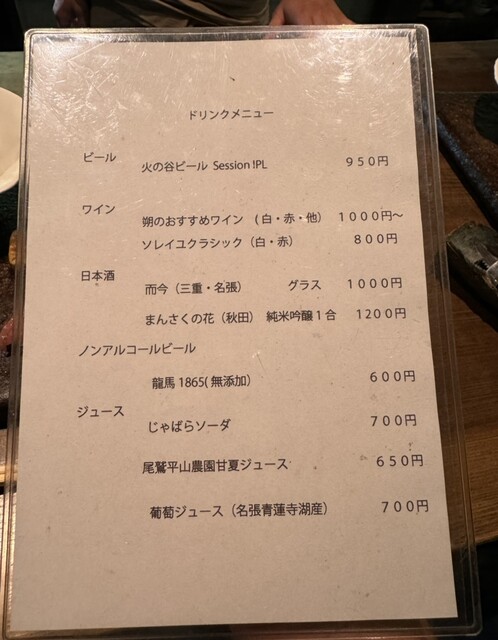 ドリンクメニュー
ビール
火の谷ビール Session !PL 950円
ワイン
朔のおすすめワイン (白・赤・他) 1000円~
ソレイユクラシック (白・赤) 800円
日本酒
而今 (三重・名張) グラス 1000円
まんさくの花 (秋田) 純米吟醸1合 1200円
ノンアルコールビール
龍馬1865(無添加) 600円
ジュース
じゃばらソーダ 700円
尾鷲平山農園甘夏ジュース 650円
葡萄ジュース (名張青蓮寺湖産) 700円